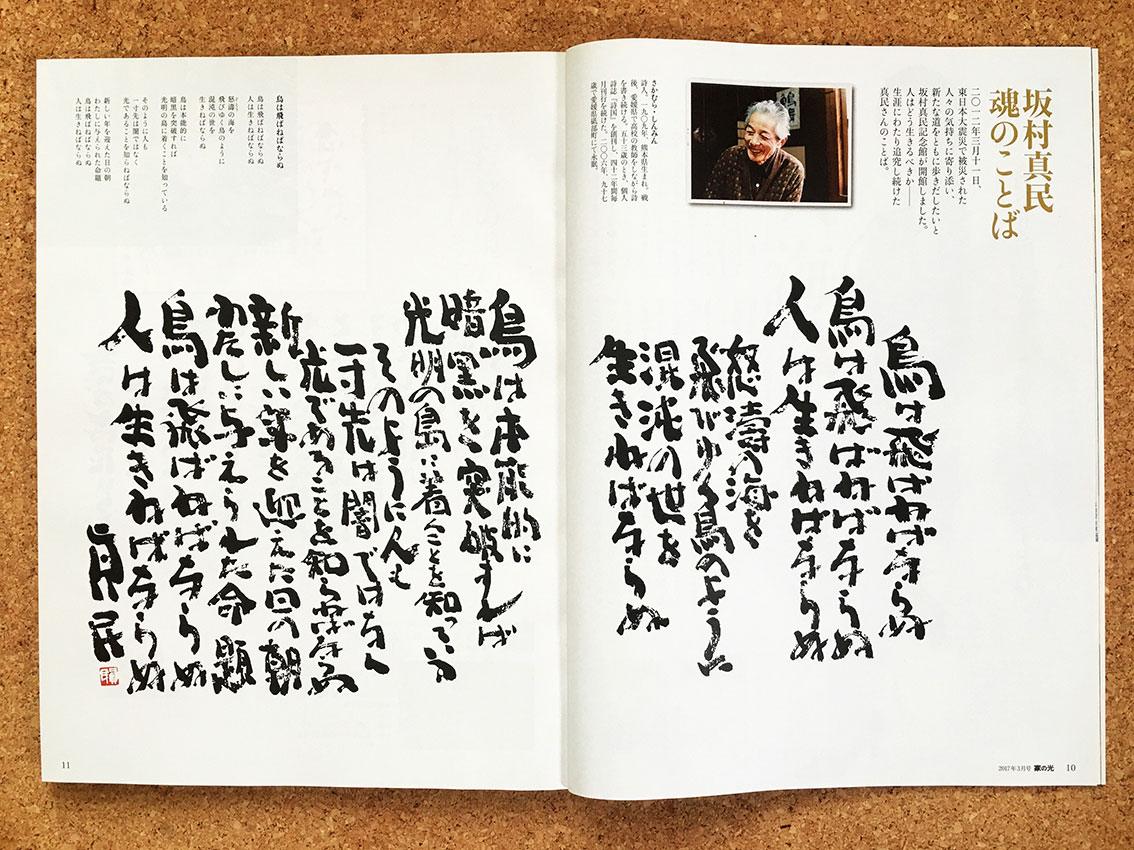 坂村真民
魂のことば
二〇一二年三月十一日、
東日本大震災で被災された
人々の気持ちに寄り添い、
新たな道をともに歩きだしたいと
坂村真民記念館が開館しました。
人はどう生きるべきか——
生涯にわたり追究し続けた
真民さんのことば。
さかむら・しんみん
詩人。一九〇九年、熊本県生まれ。戦
後、愛媛県で高校の教師をしながら詩
を書き続ける。五十三歳のとき、個人
詩誌「詩国」を創刊し、四十二年間毎
月刊行を続けた。二〇〇六年、九十七
歳で愛媛県砥部町にて永眠。
鳥は飛ばねばならぬ
鳥は飛ばねばならぬ
人は生きねばならぬ
怒濤の海を
飛びゆく鳥のように
混沌の世を
生きねばならぬ
2017年3月号 家の光 10
鳥は飛ばねばならぬ
鳥は飛ばねばならぬ
人は生きねばならぬ
怒濤の海を
飛びゆく鳥のように
混沌の世を
生きねばならぬ
鳥は本能的に
暗黒を突破すれば
光明の島に着くことを知っている
そのように人も
一寸先は闇ではなく
光であることを知らねばならぬ
新しい年を迎えた日の朝
わたしに与えられた命題
鳥は飛ばねばならぬ
人は生きねばならぬ
鳥は本能的に
暗黒を突破すれば
光明の島に着くことを知っている
そのように人も
一寸先は闇ではなく
光であることを知らねばならぬ
新しい年を迎えた日の朝
わたしに与えられた命題
鳥は飛ばねばならぬ
人は生きねばならぬ
真民
11